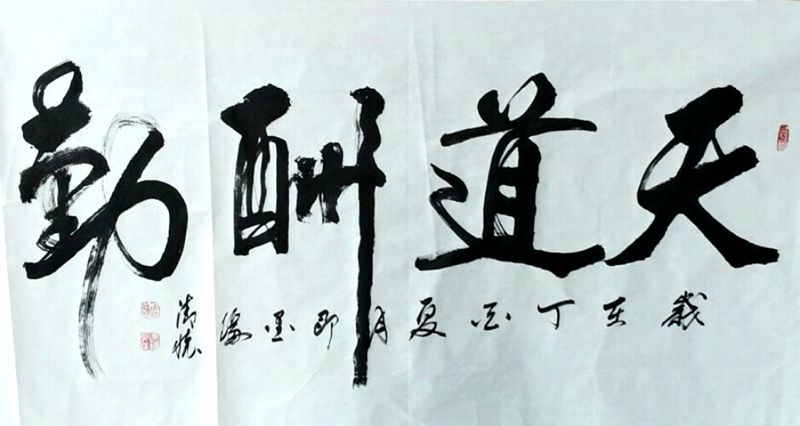 天道酬勤
岁在丁酉夏月即墨